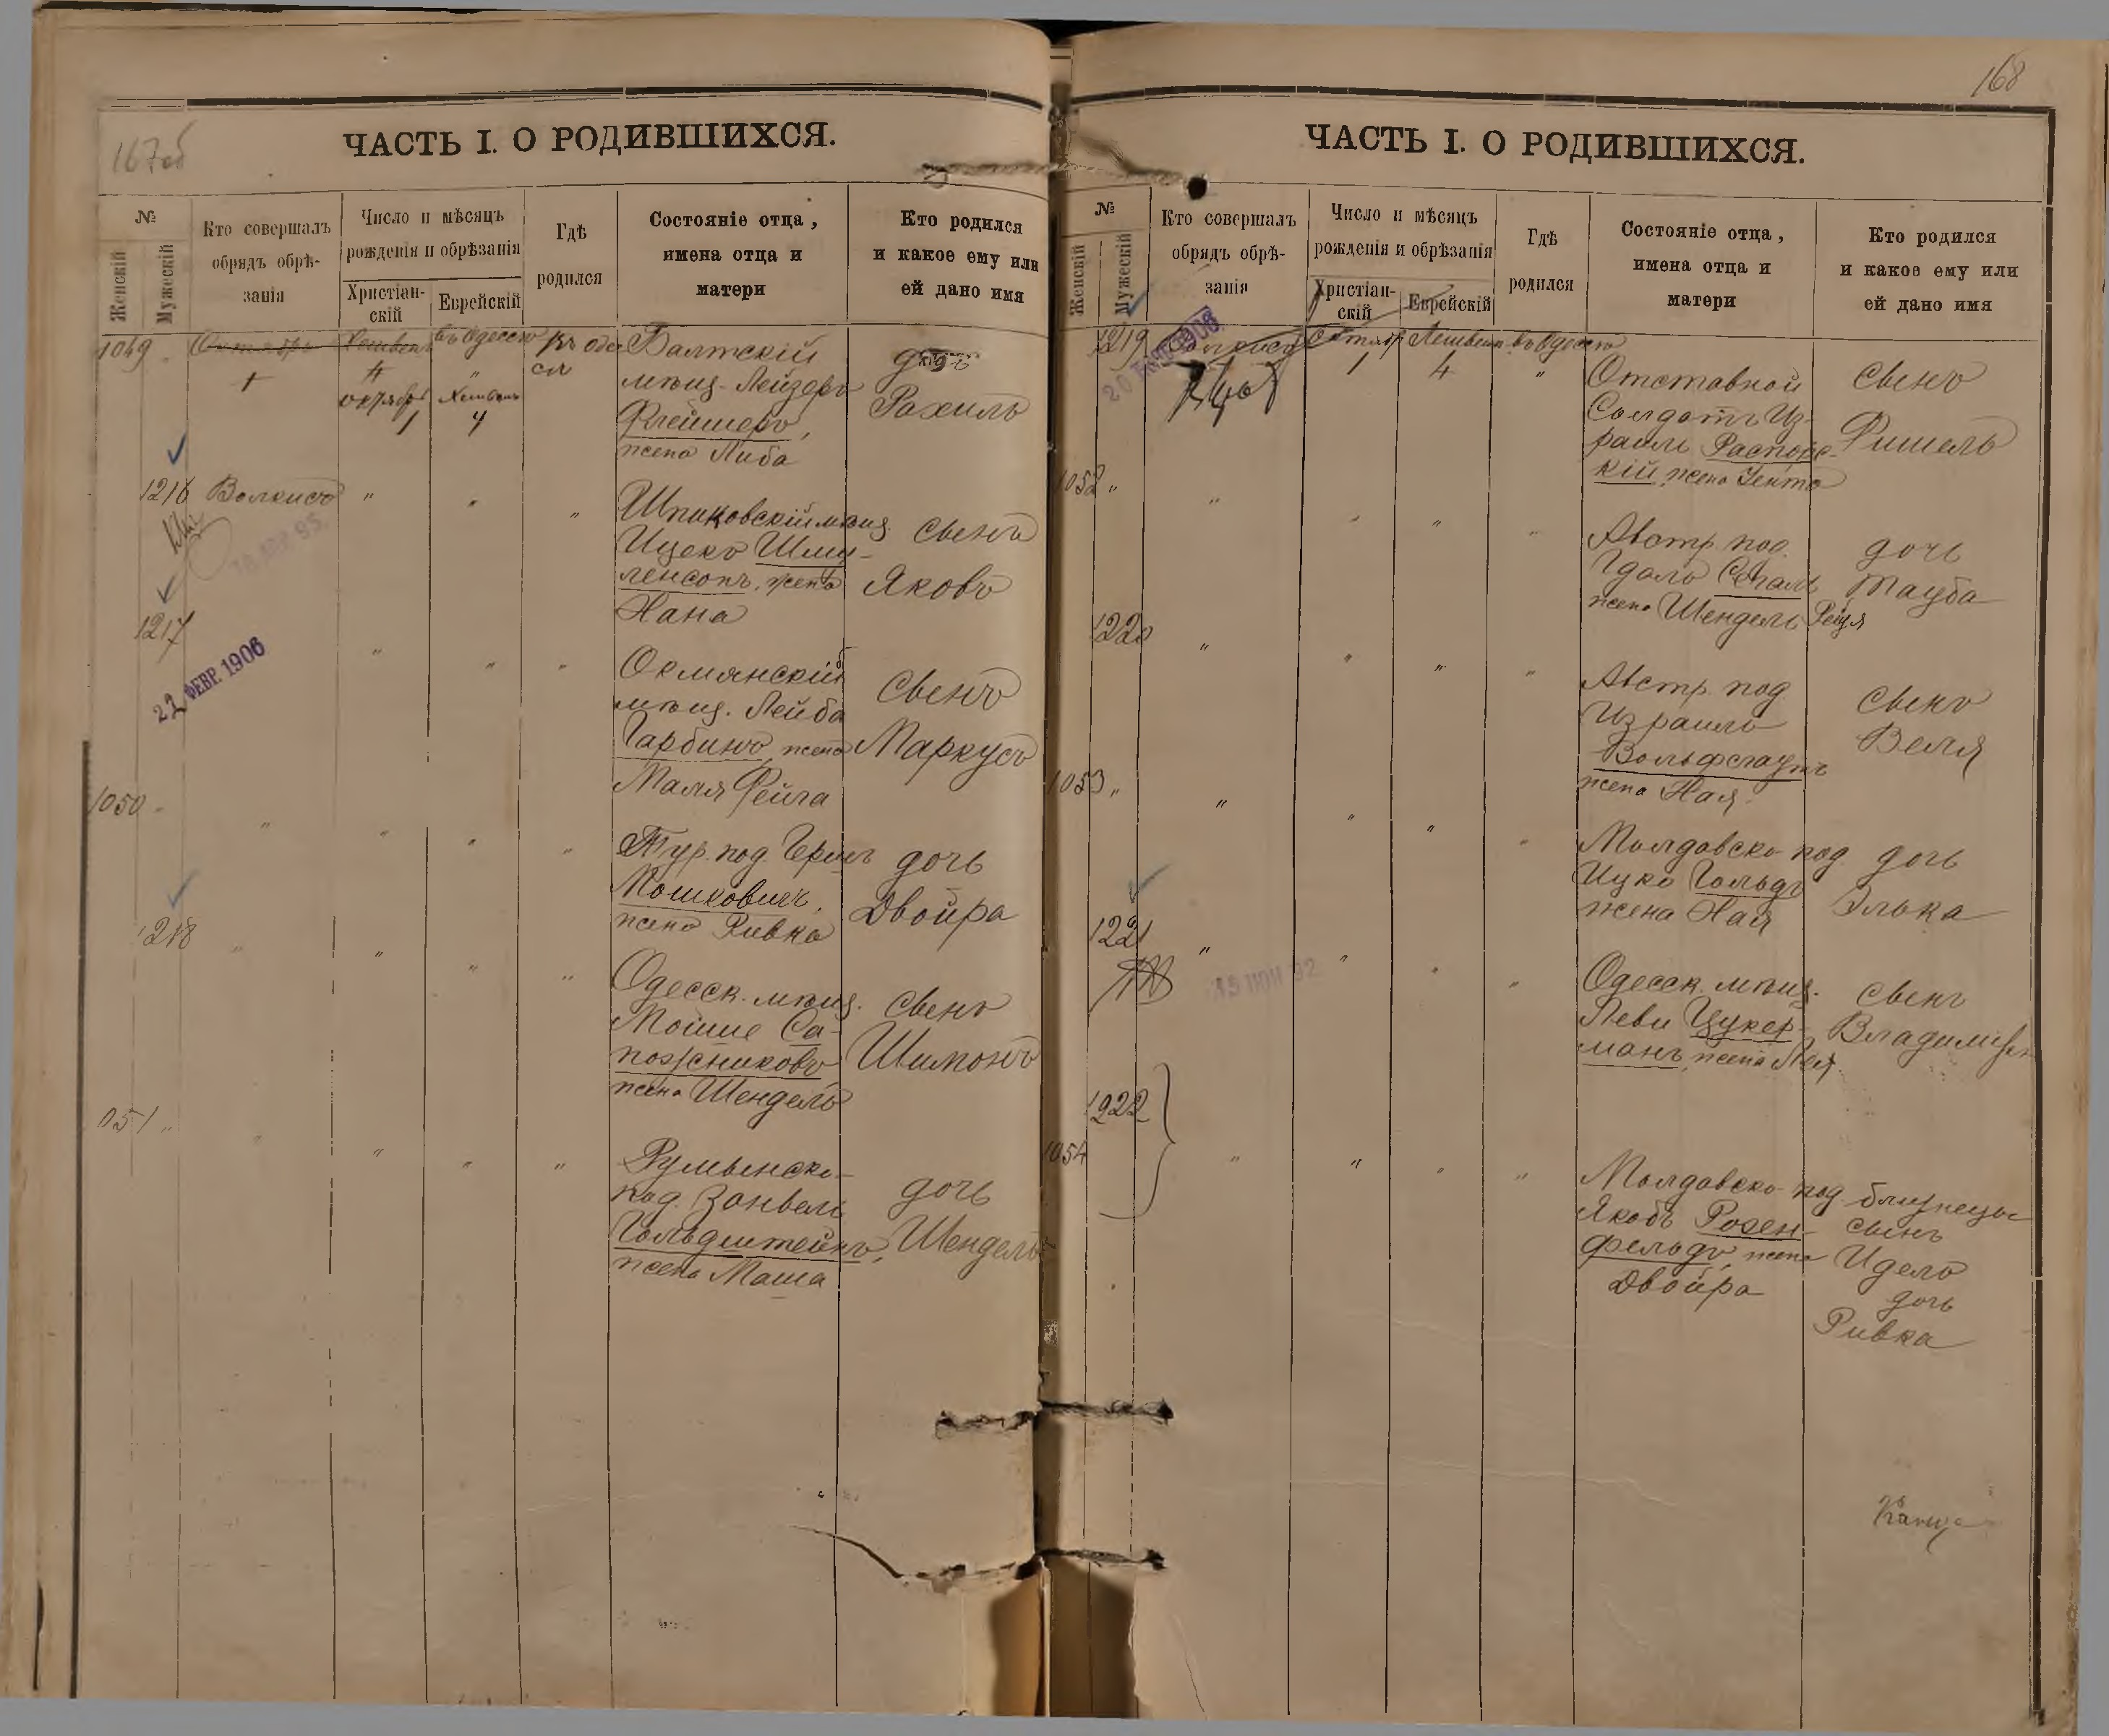 167об
ЧАСТЬ I. О РОДИВШИХСЯ.
№
Женскій
Мужескій
Кто совершалъ
обрядъ обрѣ-
занія
Число и мѣсяцъ
рожденія и обрѣзанія
Христіан-
скій
Еврейскій
Гдѣ
родился
Состояніе отца,
имена отца и
матери
Кто родился
и какое ему или
ей дано имя
1049
Октябрь Хешвенъ въ Одессѣ
октябрь 1
Хешвенъ 4
Въ Оде
сси
Балтскій
мѣщ. Лейзеръ
Флейшеръ,
жена Либа
дочь
Рахиль
1216 Волкисъ " " "
18 АПР 95
Шпиковскій мѣщ.
Ицекъ Шму-
ленсонъ, жена
Хана
сынъ
Яковъ
1217
22 ФЕВР. 1906
" " "
Окмянскій
мѣщ. Лейба
Гарбинъ, жена
Маля Фейга
сынъ
Маркусъ
1050 " " " " "
Тур. под. Гершъ
Мошковичъ,
жена Ривка
дочь
Двойра
1218 " " " "
Одесск. мѣщ.
Мойше Са-
пожниковъ
жена Шендель
сынъ
Шимонъ
051 " " " " "
Румынско-
под. Зонвель
Гольдштейнъ,
жена Маша
дочь
Шендель
168
ЧАСТЬ I. О РОДИВШИХСЯ.
№
Женскій
Мужескій
Кто совершалъ
обрядъ обрѣ-
занія
Число и мѣсяцъ
рожденія и обрѣзанія
Христіан-
скій
Еврейскій
Гдѣ
родился
Состояніе отца,
имена отца и
матери
Кто родился
и какое ему или
ей дано имя
1219 Волкисъ Октябр Хешвенъ въ Одессѣ
1 4 "
Отставной
Солдатъ Из-
раиль
кій, жена Гентя
сынъ
Фишель
1052 " " " " "
Австр. под.
Гдаль
жена Шендель
дочь
Тауба
Рейзя
1220 " " " "
Австр. под.
Израиль
жена Хая.
сынъ
Веля
1053 " " " " "
Молдавско-под.
Ицко Гольдъ
жена Хая
дочь
Элька
1221 " " " "
Одесск. мѣщ.
Леви Цукер-
манъ, жена Лея.
сынъ
Владимиръ
1222
1054 " " " "
Молдавско-под.
Якобъ Розен-
фельдъ, жена
Двойра
близнецы
сынъ
Идель
дочь
Ривка